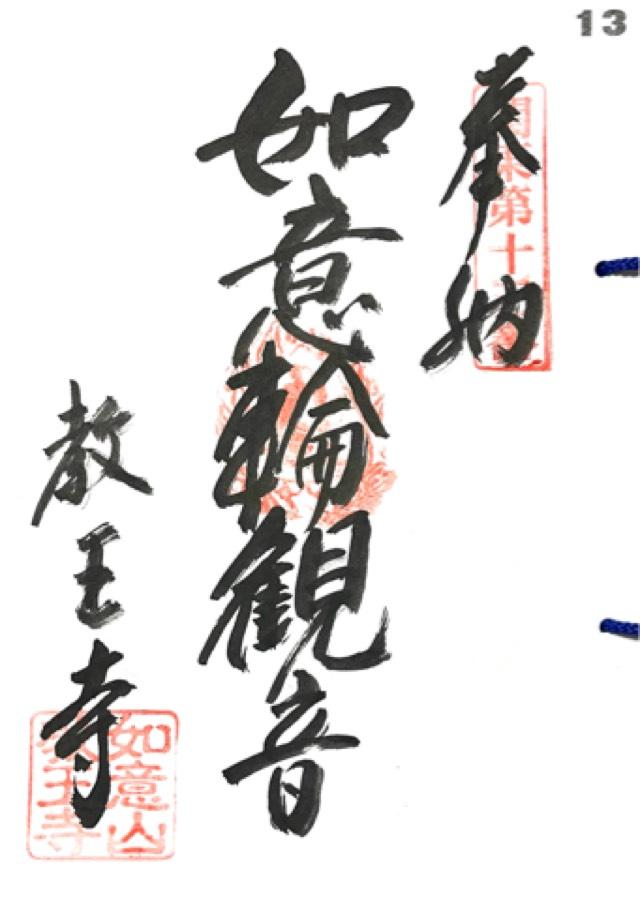 13
奉納
如意輪観音
教王寺
第十
如意山
教王寺